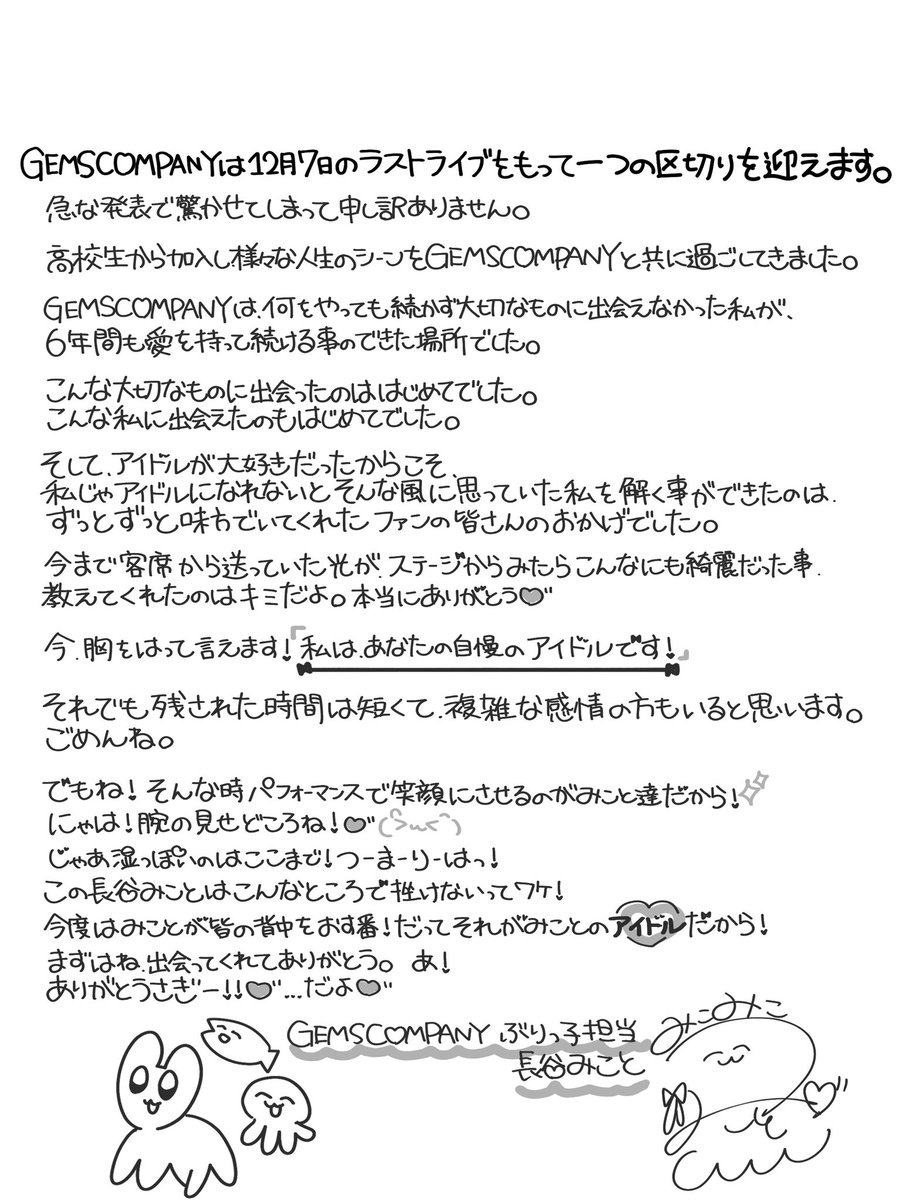 GEMSCOMPANYは12月7日のラストライブをもって一つの区切りを迎えます。
急な発表で驚かせてしまって申し訳ありません。
高校生から加入し、様々な人生のシーンをGEMSCOMPANYと共に過ごしてきました。
GEMSCOMPANYは、何をやっても続かず大切なものに出会えなかった私が、
6年間も愛を持って続ける事のできた場所でした。
こんな大切なものに出会ったのははじめてでした。
こんな私に出会えたのもはじめてでした。
そして、アイドルが大好きだったからこそ、
私じゃアイドルになれないとそんな風に思っていた私を解く事ができたのは、
ずっとずっと味方でいてくれたファンの皆さんのおかげでした。
今まで客席から送っていた光が、ステージからみたらこんなにも綺麗だった事、
教えてくれたのはキミだよ。本当にありがとう♡"
今、胸をはって言えます!「私は、あなたの自慢のアイドルです!」
それでも残された時間は短くて、複雑な感情の方もいると思います。
ごめんね。
でもね!そんな時パフォーマンスで笑顔にさせるのがみこと達だから!
にゃは!腕の見せどころね!♡"
じゃあ湿っぽいのはここまで!つーまーりーはっ!
この長谷みことはこんなところで挫けないってワケ!
今度はみことが皆の背中をおす番!だってそれがみことのアイドルだから!
まずはね、出会ってくれてありがとう。 あ!
ありがとうさぎー!!♡"...だよ♡"
GEMSCOMPANY ぶりっ子担当
長谷みこと
みこみこ